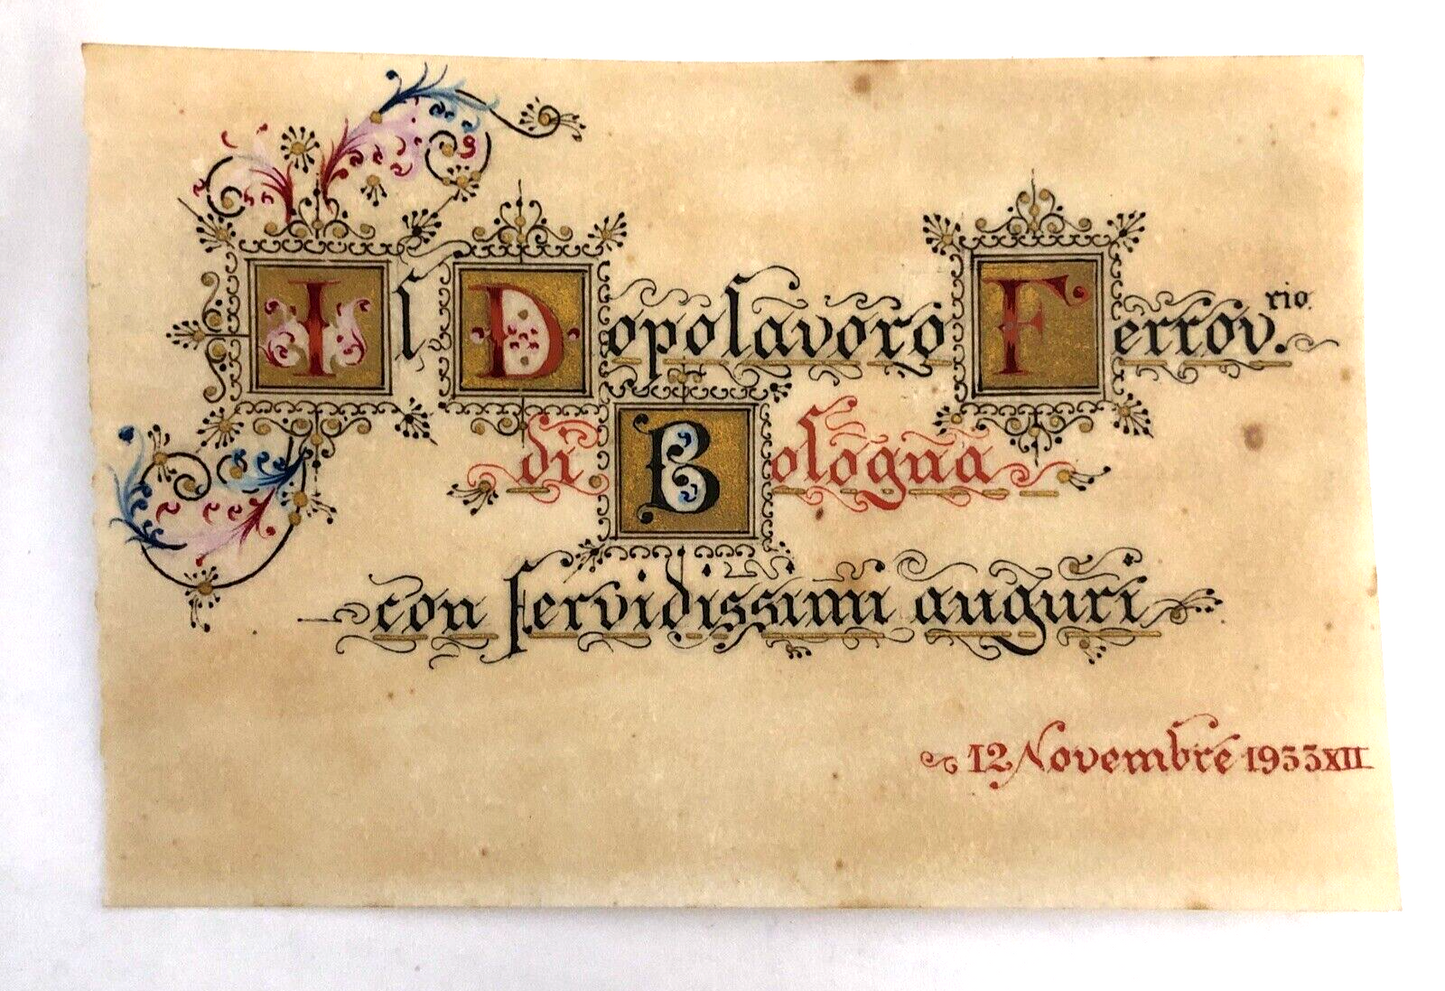 Il Dopolavoro Ferrov.rio
di Bologna
con fervidissimi auguri
12 Novembre 1933 XII